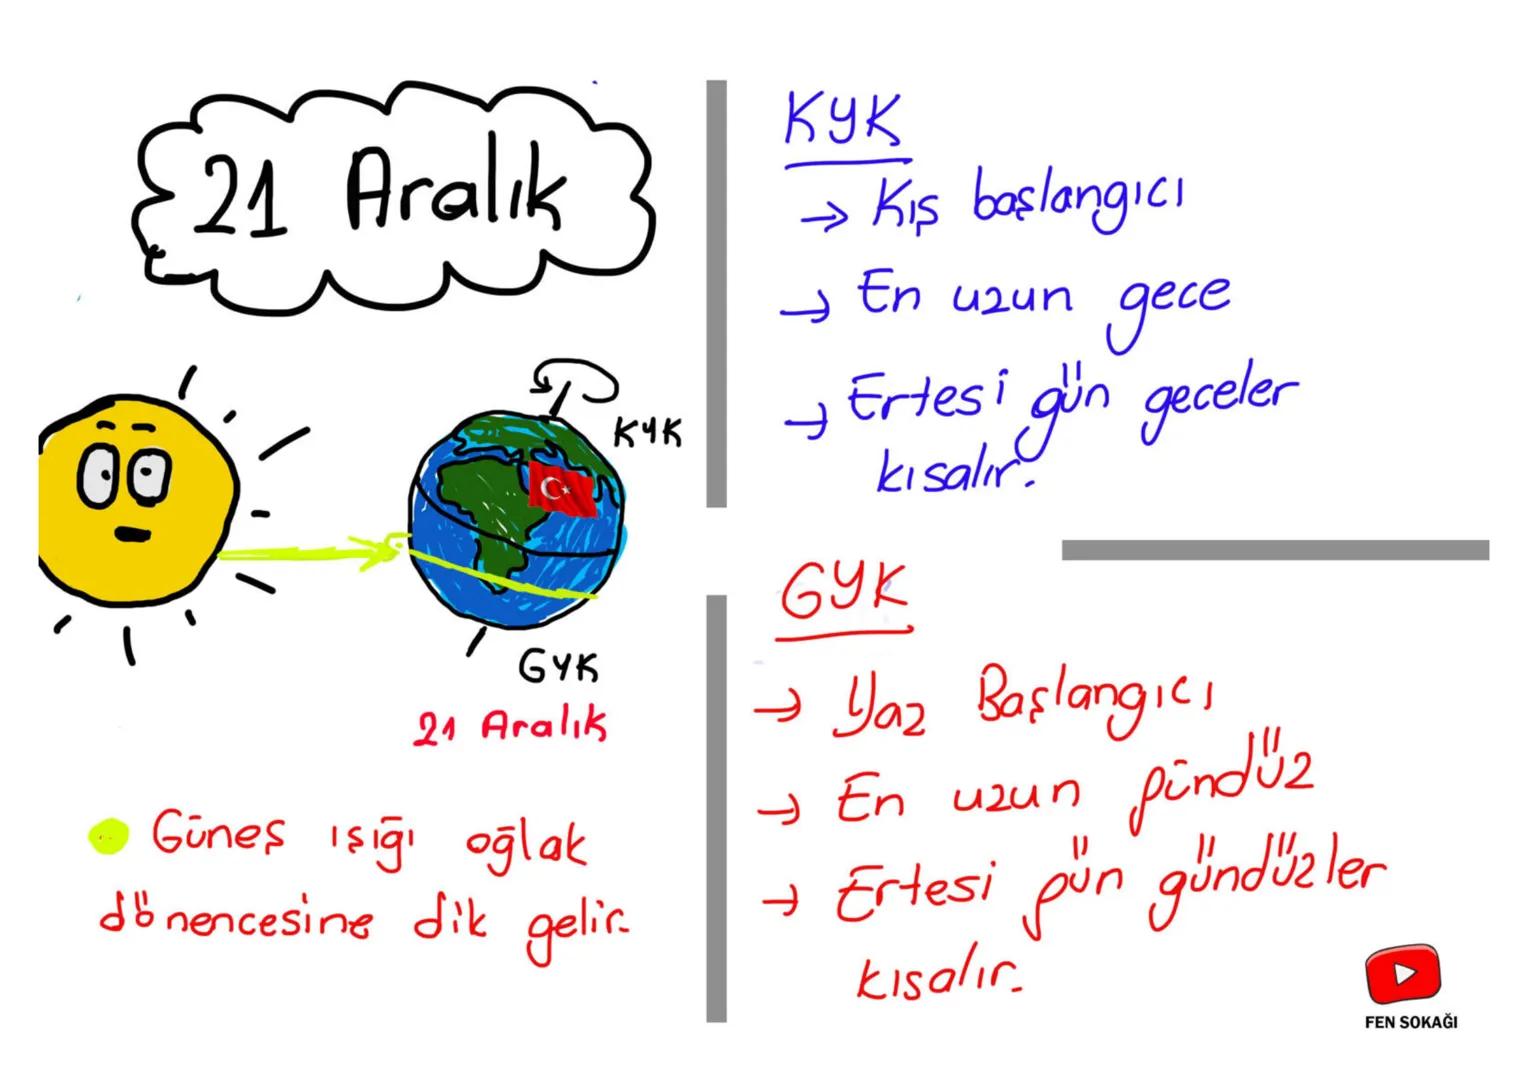 21 Aralık
KYK
GYK
21 Aralık
Güneş ışığı oğlak
dönencesine dik gelir.
KYK
→ Kış başlangıcı
→ En uzun gece
→ Ertesi gün geceler
kısalır.
GYK
→ Yaz Başlangıcı
→ En uzun gündüz
→ Ertesi gün gündüzler
kısalır.
FEN SOKAĞI